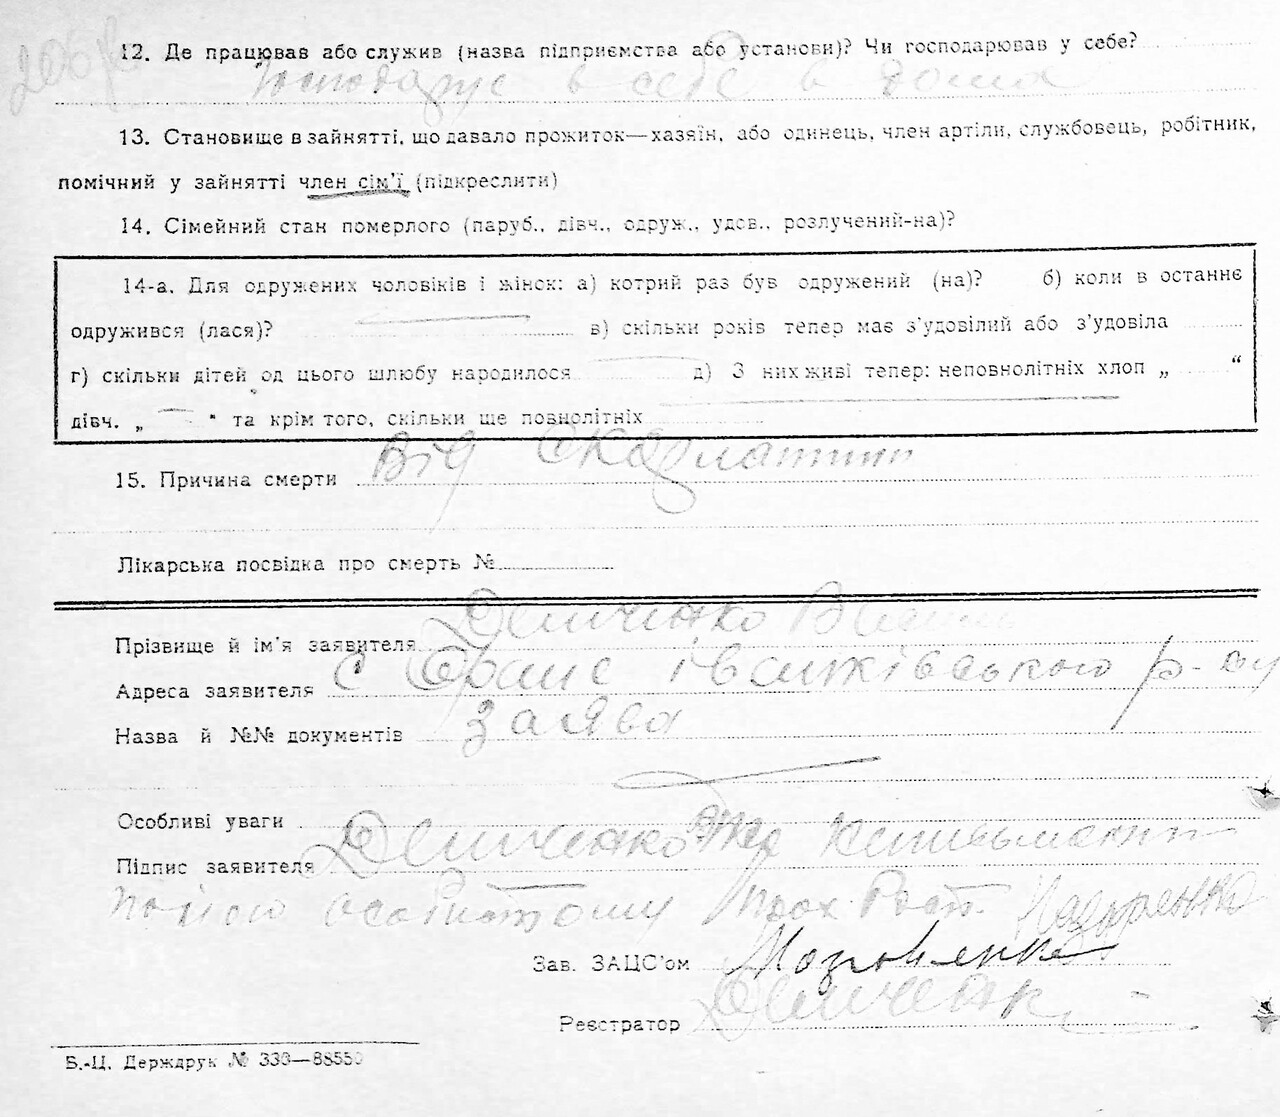 12. Де працював або служив (назва підприємства або установи)? Чи господарював у себе?
Господарює в себе в дома
13. Становище в зайнятті, що давало прожиток—хазяїн, або одинець, член артіли, службовець, робітник,
помічний у зайнятті член сім'ї (підкреслити)
14. Сімейний стан померлого (паруб., дівч., одруж., удов., розлучений-на)?
14-а. Для одружених чоловіків і жінок: а) котрий раз був одружений (на)? б) коли в останнє
одружився (лася)? в) скільки років тепер має з'удовілий або з'удовіла
г) скільки дітей од цього шлюбу народилося д) З них живі тепер: неповнолітніх хлоп „ “
дівч. „ “ та крім того, скільки ще повнолітніх
15. Причина смерти Від скарлатини
Лікарська посвідка про смерть №
Прізвище й ім'я заявителя Демченко
Адреса заявителя с Іванківського р-ну
Назва й №№ документів Заява
Особливі уваги
Підпис заявителя Демченко
особистому прох.
Зав. ЗАЦС'ом
Реєстратор Демченко
Б.-Ц. Держдрук № 333—88550